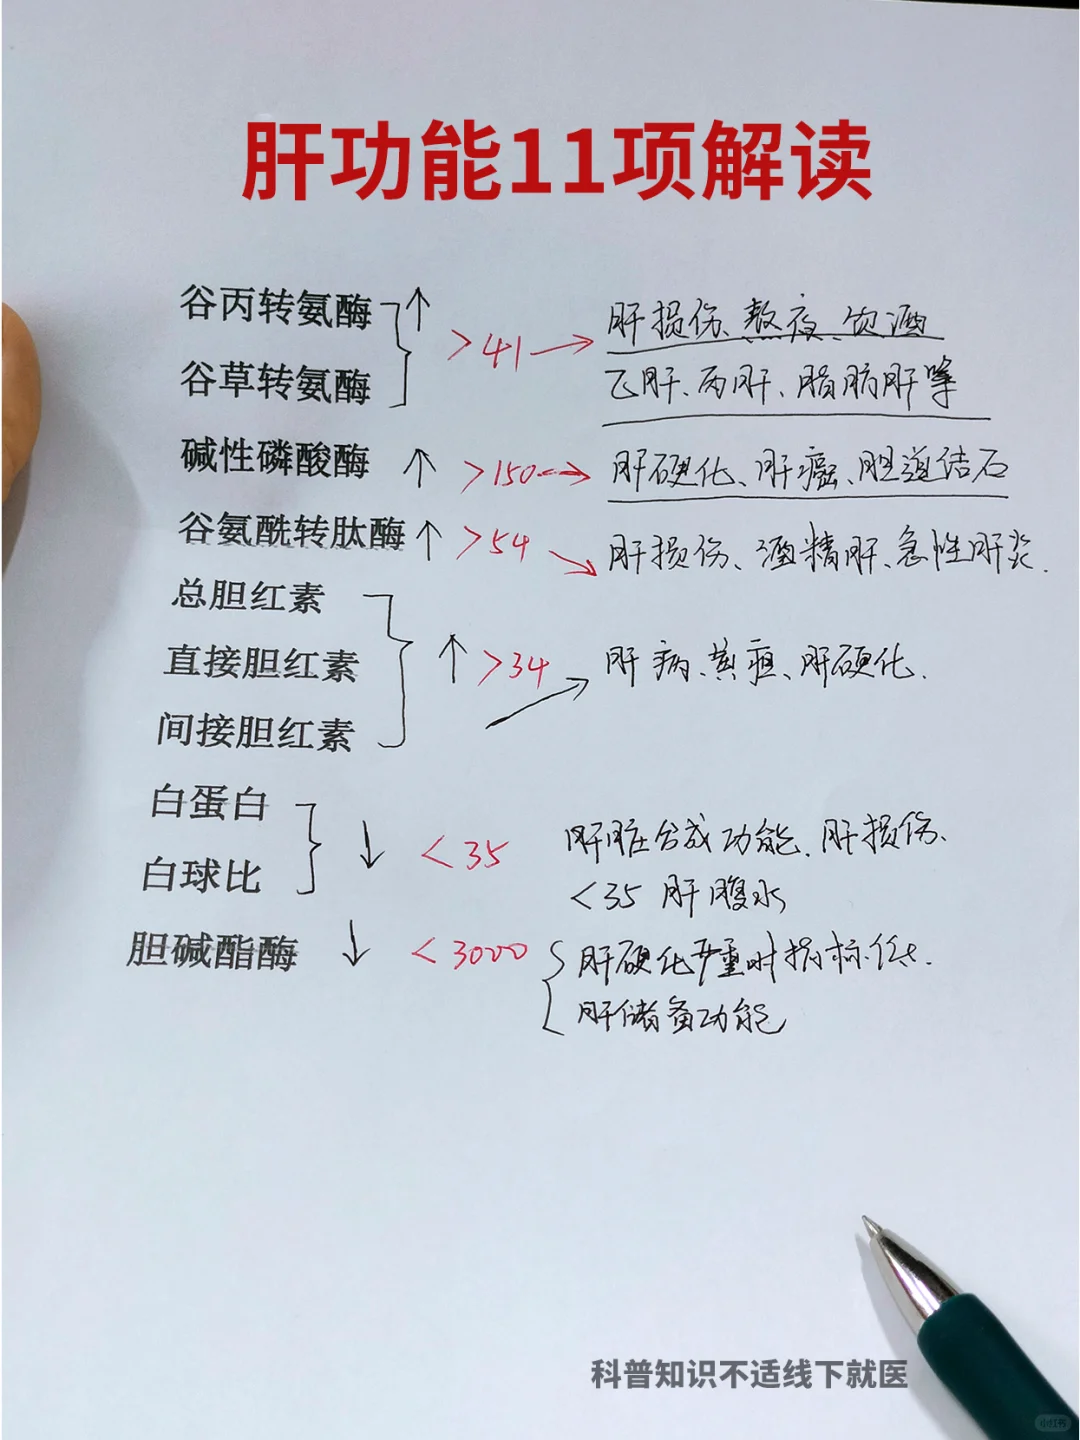 肝功能11项解读
谷丙转氨酶 ↑
>41 → 肝损伤、熬夜、饮酒
谷草转氨酶
乙肝、丙肝、脂肪肝等
碱性磷酸酶 ↑ >150 → 肝硬化、肝癌、胆道结石
谷氨酰转肽酶 ↑ >54 → 肝损伤、酒精肝、急性肝炎.
总胆红素
直接胆红素 ↑ >34 → 肝病、黄疸、肝硬化.
间接胆红素
白蛋白
↓ <35 肝脏合成功能、肝损伤、
白球比
<35 肝腹水
胆碱酯酶 ↓ <3000 肝硬化严重时指标低.
肝储备功能
科普知识不适线下就医
小红书